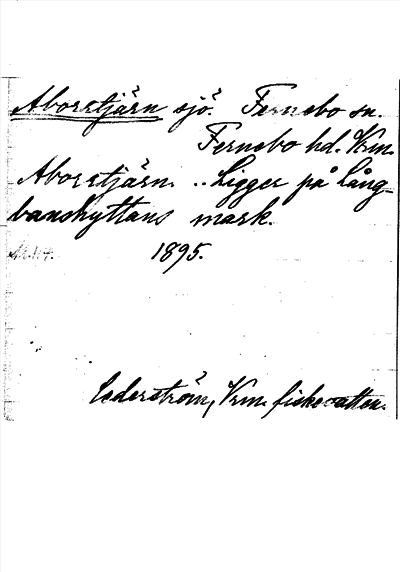 Aborrtjärn sjö. Fernebo sn.
Fernebo hd. Vrm.
Aborrtjärn. .. Ligger på Lång-
banshyttans mark.
1895.
Cederström, Vrm. fiskevatten.